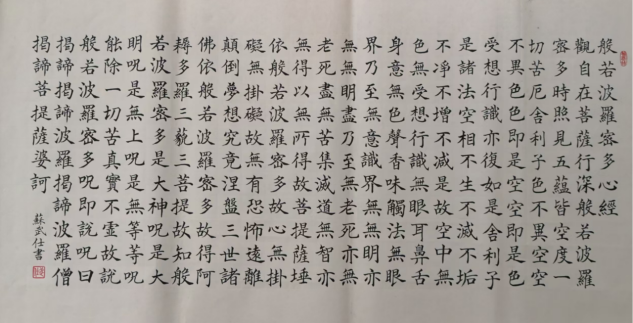 般若波羅密多心經
觀自在菩薩行深般若波羅
密多時照見五蘊皆空度一
切苦厄舍利子色不異空空
不異色色即是空空即是色
受想行識亦復如是舍利子
是諸法空相不生不滅不垢
不净不增不減是故空中無
色無受想行識無眼耳鼻舌
身意無色聲香味觸法無眼
界乃至無意識界無無明亦
無無明盡乃至無老死亦無
老死盡無苦集滅道無智亦
無得以無所得故菩提薩埵
依般若波羅密多故心無掛
礙無掛礙故無有恐怖遠離
顛倒夢想究竟涅盤三世諸
佛依般若波羅密多故得阿
耨多羅三藐三菩提故知般
若波羅密多是大神呪是大
明呪是無上呪是無等等呪
能除一切苦真實不虛故説
般若波羅密多呪即説呪曰
揭諦揭諦波羅揭諦波羅僧
揭諦菩提薩婆訶
蘇武仕書